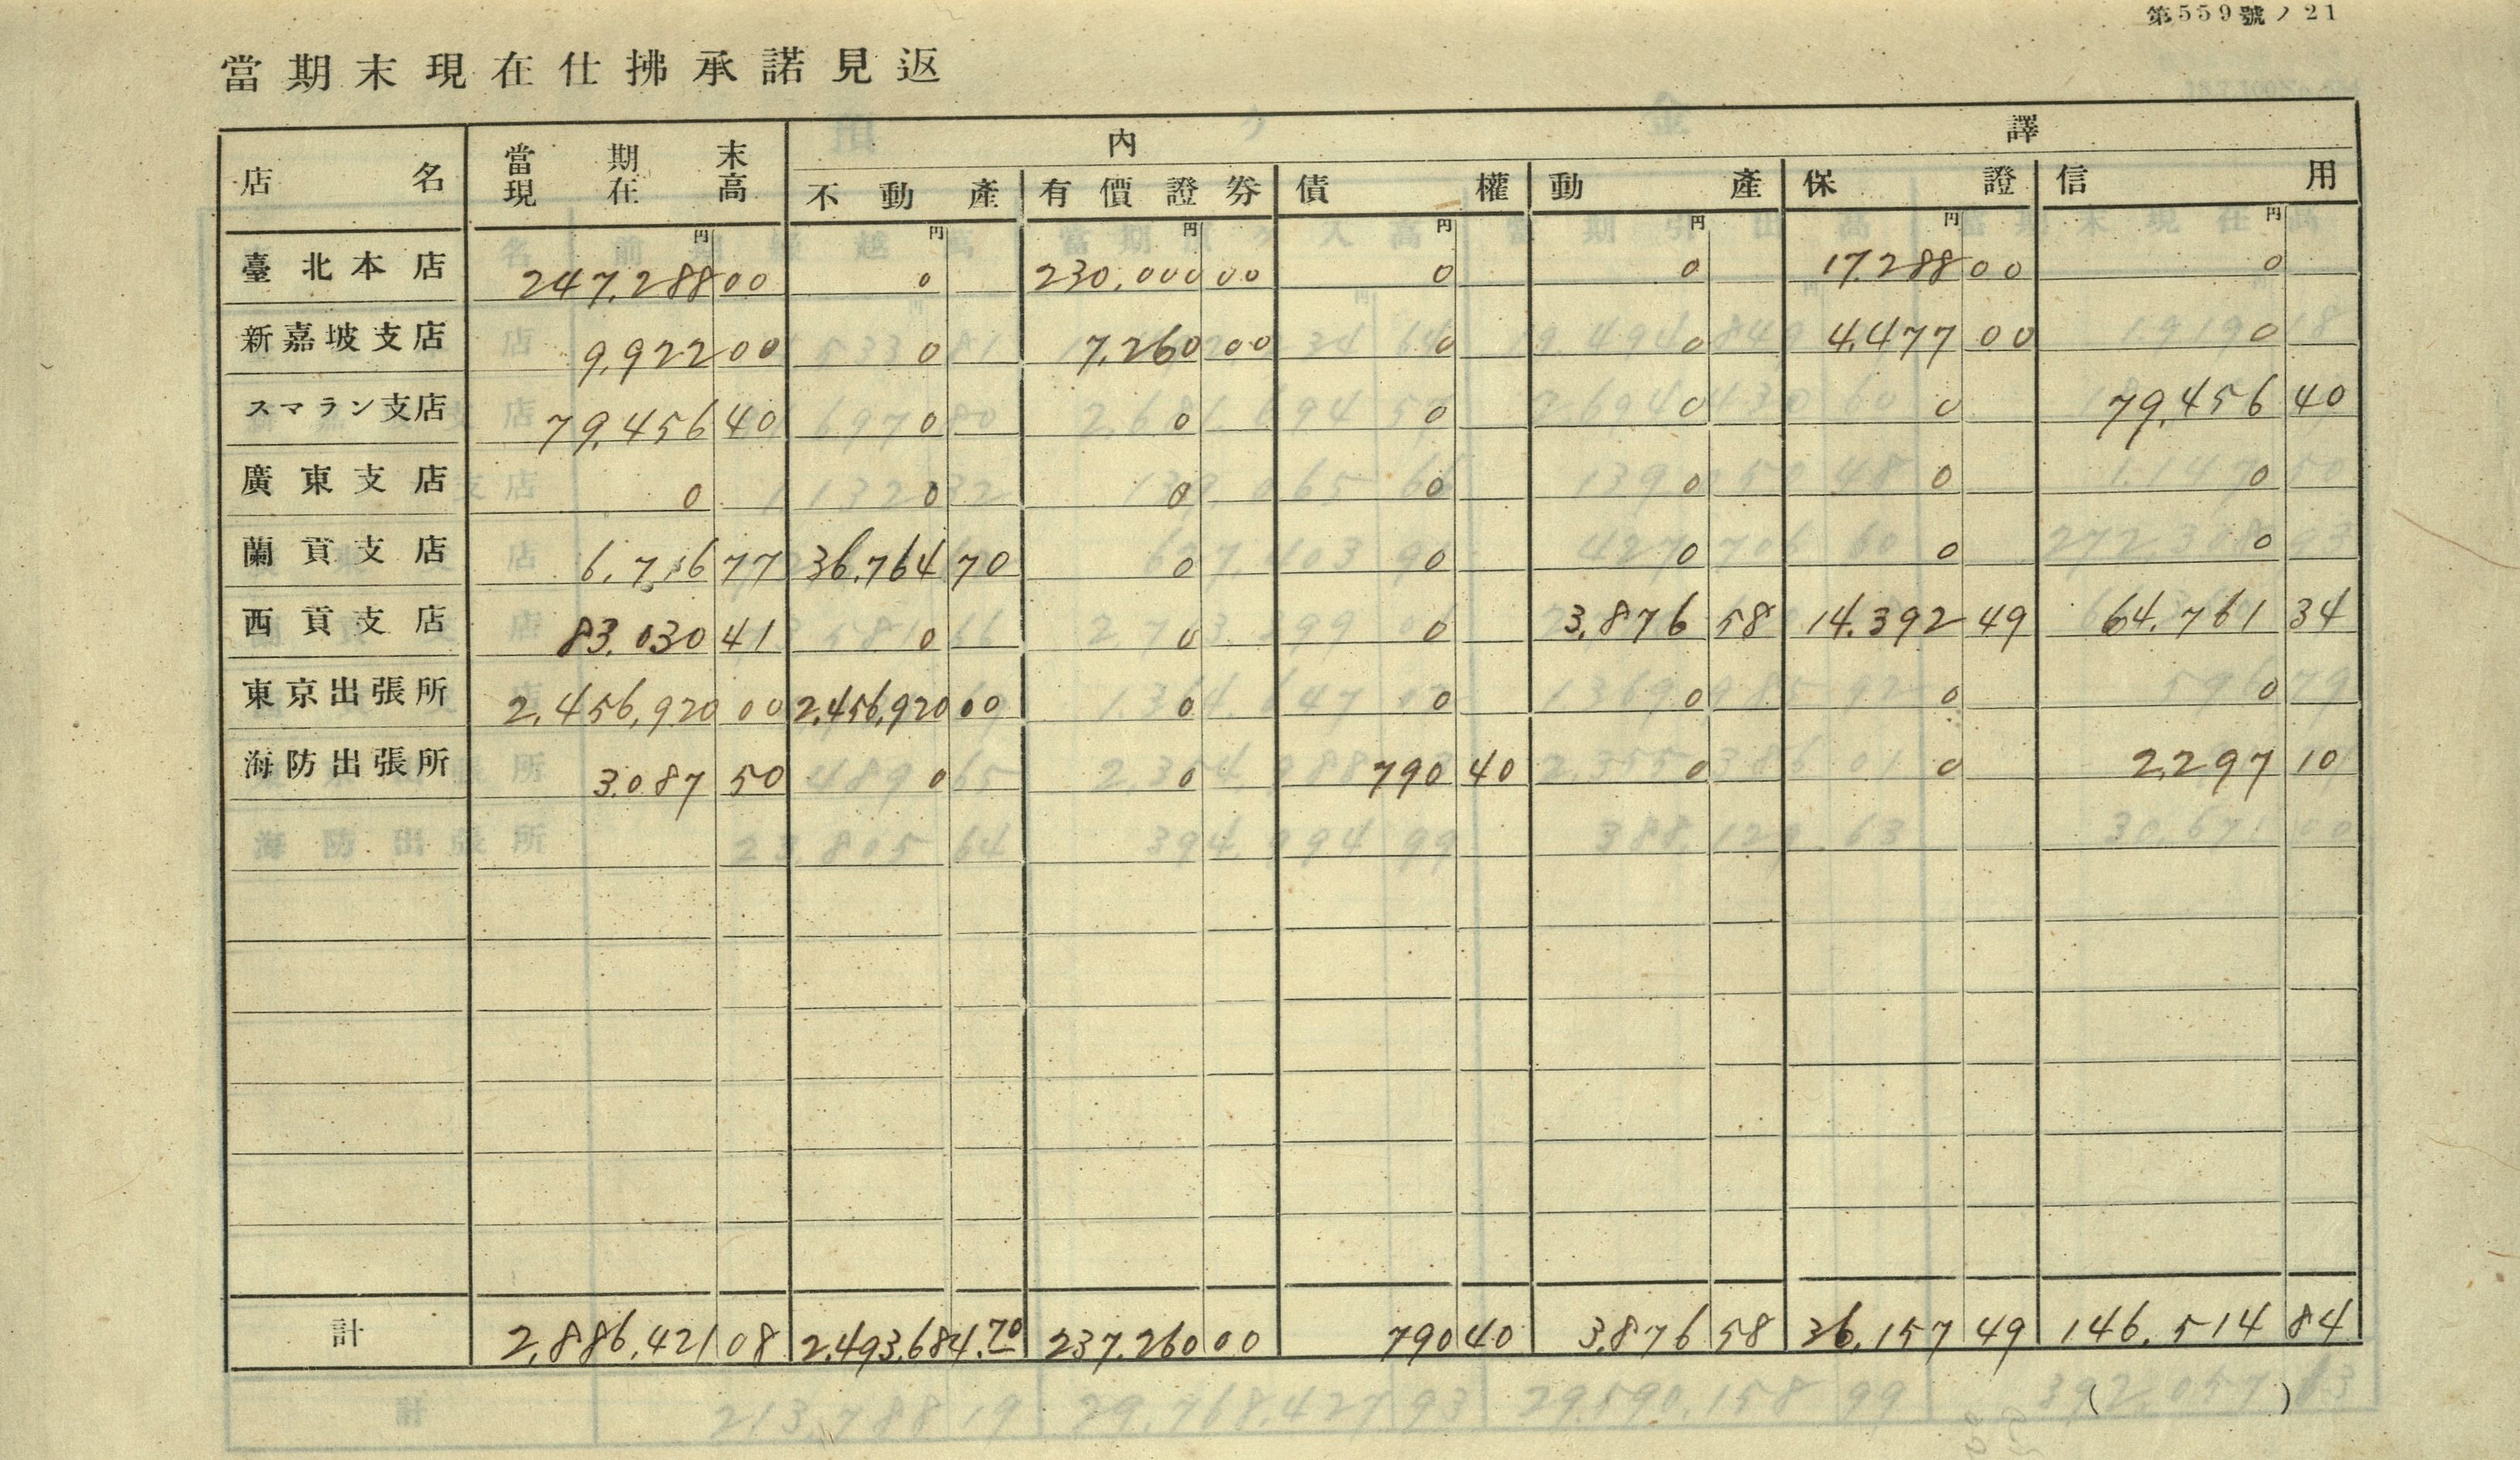 第559號ノ21
當期末現在仕拂承諾見返
店名 當期末現在高 內譯
不動產 有價證券 債權 動產 保證 信用
円 円 円 円 円 円 円
臺北本店 247,288 00 0 230,000 00 0 0 17,288 00 0
新嘉坡支店 9,922 00 0 7,260 00 0 0 4,477 00 0
スマラン支店 79,456 40 0 0 0 0 0 79,456 40
廣東支店 0 0 0 0 0 0 0
蘭貢支店 6,716 77 36,764 70 0 0 0 0 0
西貢支店 83,030 41 0 0 0 3,876 58 14,392 49 64,761 34
東京出張所 2,456,920 00 2,456,920 00 0 0 0 0 0
海防出張所 3,087 50 0 0 790 40 0 0 2,297 10
計 2,886,421 08 2,493,684.70 237,260 00 790 40 3,876 58 36,157 49 146,514 84
( )